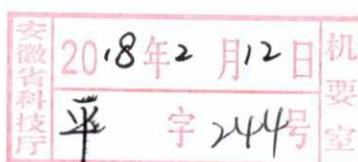 安徽省科技厅
2018年2月12日
平字244号
机要室